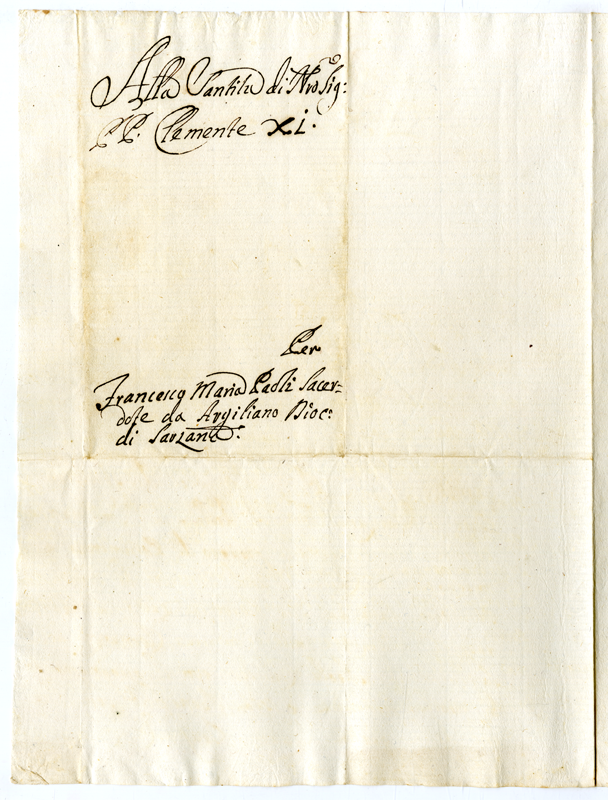 Alla Santità di Nrõ Sig:
PP. Clemente XI.
Per
Francesco Maria Paoli Sacer-
dote da Argiliano Dioc:
di Sarzana.